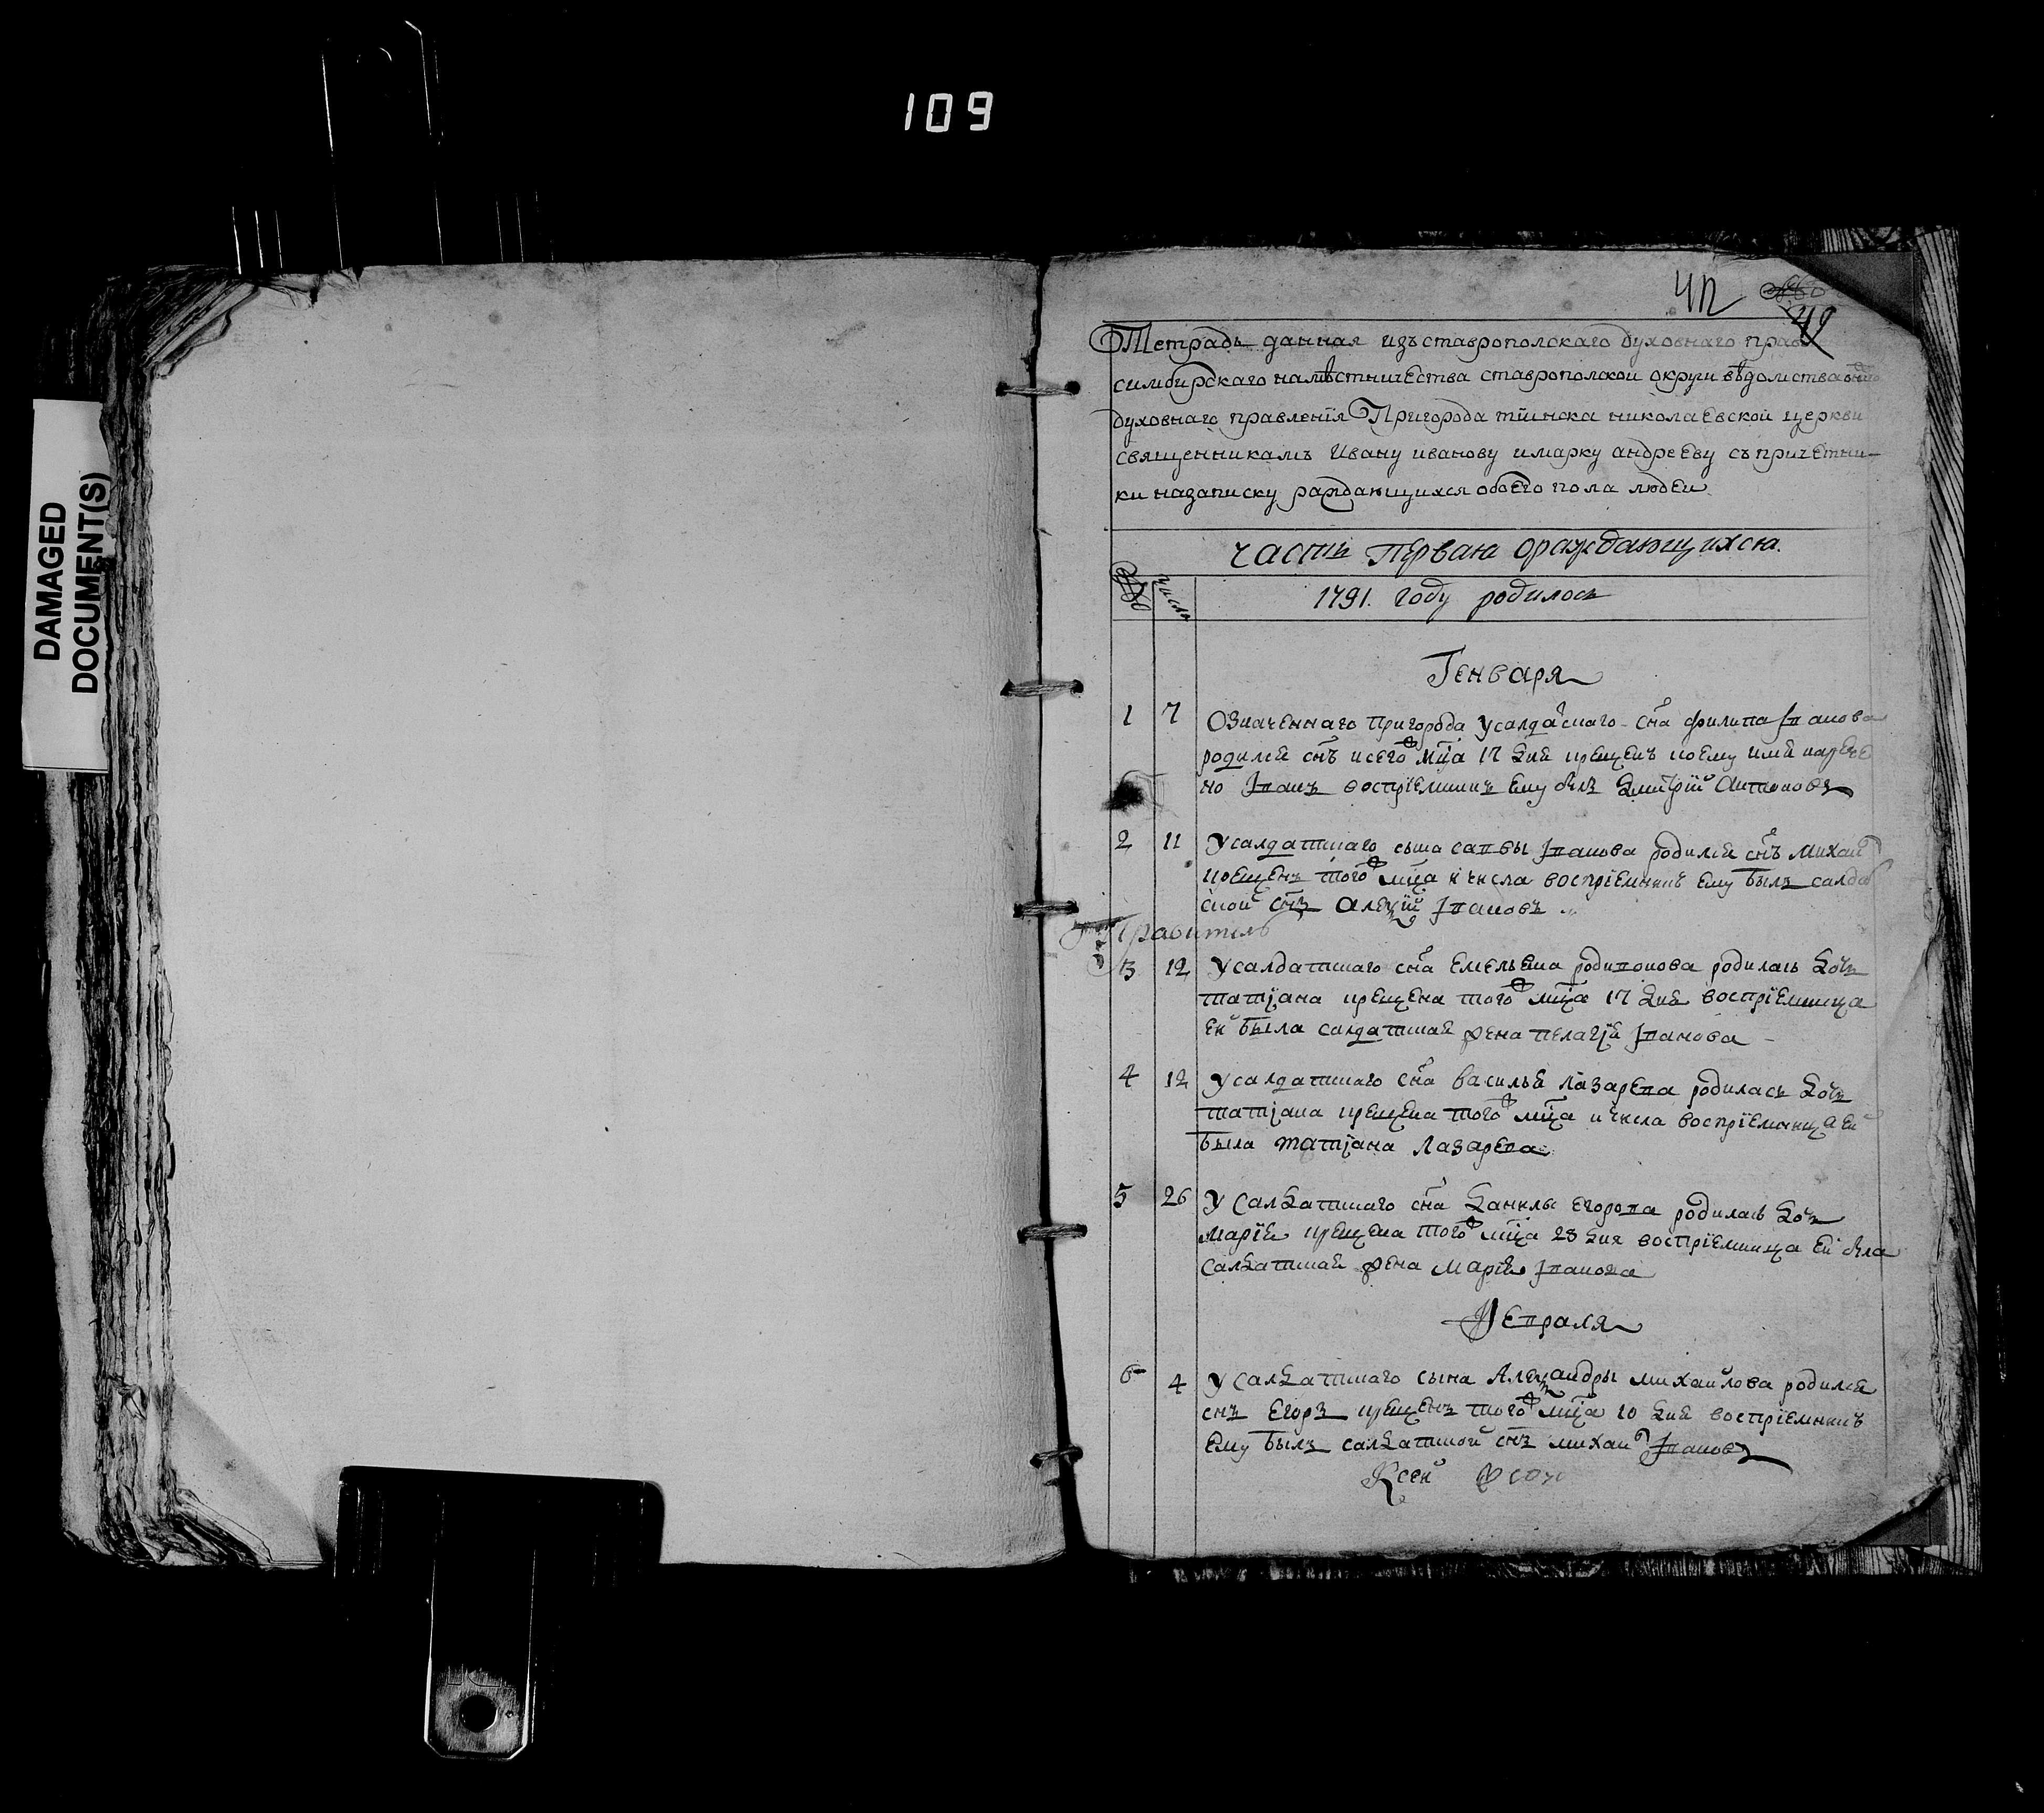 109
DAMAGED
DOCUMENT(S)
42
49
Тетрадь данная изъ ставрополскаго духовнаго
симбирскаго намѣстничества ставрополской округи вѣдомства
духовнаго правленія Пригорода тиинска николаевской церкви
священникамъ Ивану иванову и марку андрееву съ причетни-
ки на записку раждающихся обоего пола людеи
часть первая о раждающихся.
№ число
1791. году родилось
Генваря
1 7 Означеннаго пригорода у салдацкаго сна филипа Іванова
родился снъ и сего мца 17 дня крещенъ и ему имя нарече
но Іванъ воспріемникъ ему былъ Дмитрій Антоновъ
2 11 У салдатскаго сына саввы Іванова родился снъ михаи
крещенъ того мца и числа воспріемникъ ему былъ салда
скои снъ Алеѯй Івановъ
Правитель
3 12 У салдатскаго сна Емельяна родивонова родилась дочь
татіана крещена того мца 17 дня воспріемница
еи была салдатская жена пелагія Іванова
4 12 У салдатскаго сна василья лазарева родилась дочь
татіана крещена того мца и числа воспріемница еи
была татіана Лазарева
5 26 У Салдатскаго сна данилы егорова родилась дочь
марія крещена того мца 28 дня воспріемница еи была
салдатская жена марія Іванова
Февраля
6 4 У Салдатскаго сына Алеѯандры михайлова родился
снъ Егоръ крещенъ того мца 10 дня воспріемникъ
ему былъ салдатской снъ михаи Івановъ